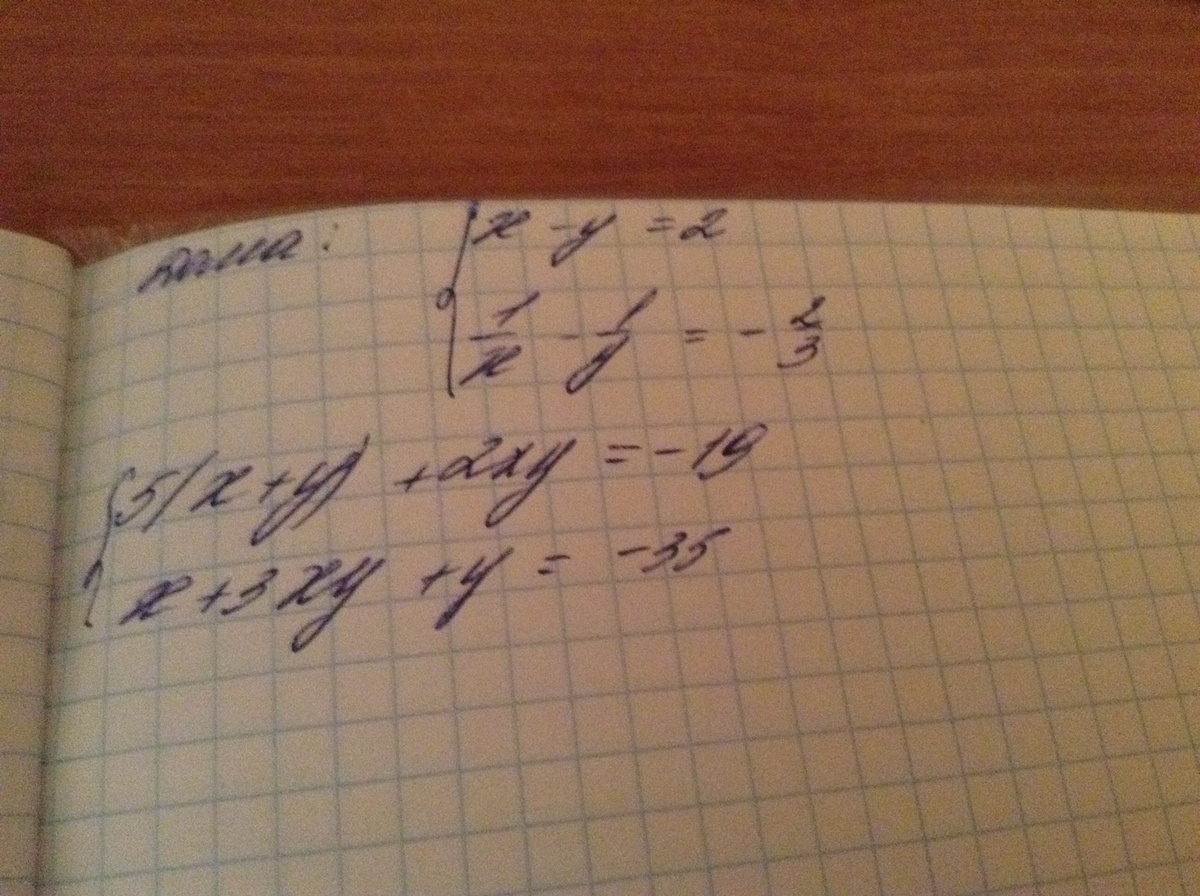 Дома: x - y = 2
1/x - 1/y = - 2/3
5(x+y) + 2xy = -19
x + 3xy + y = -35